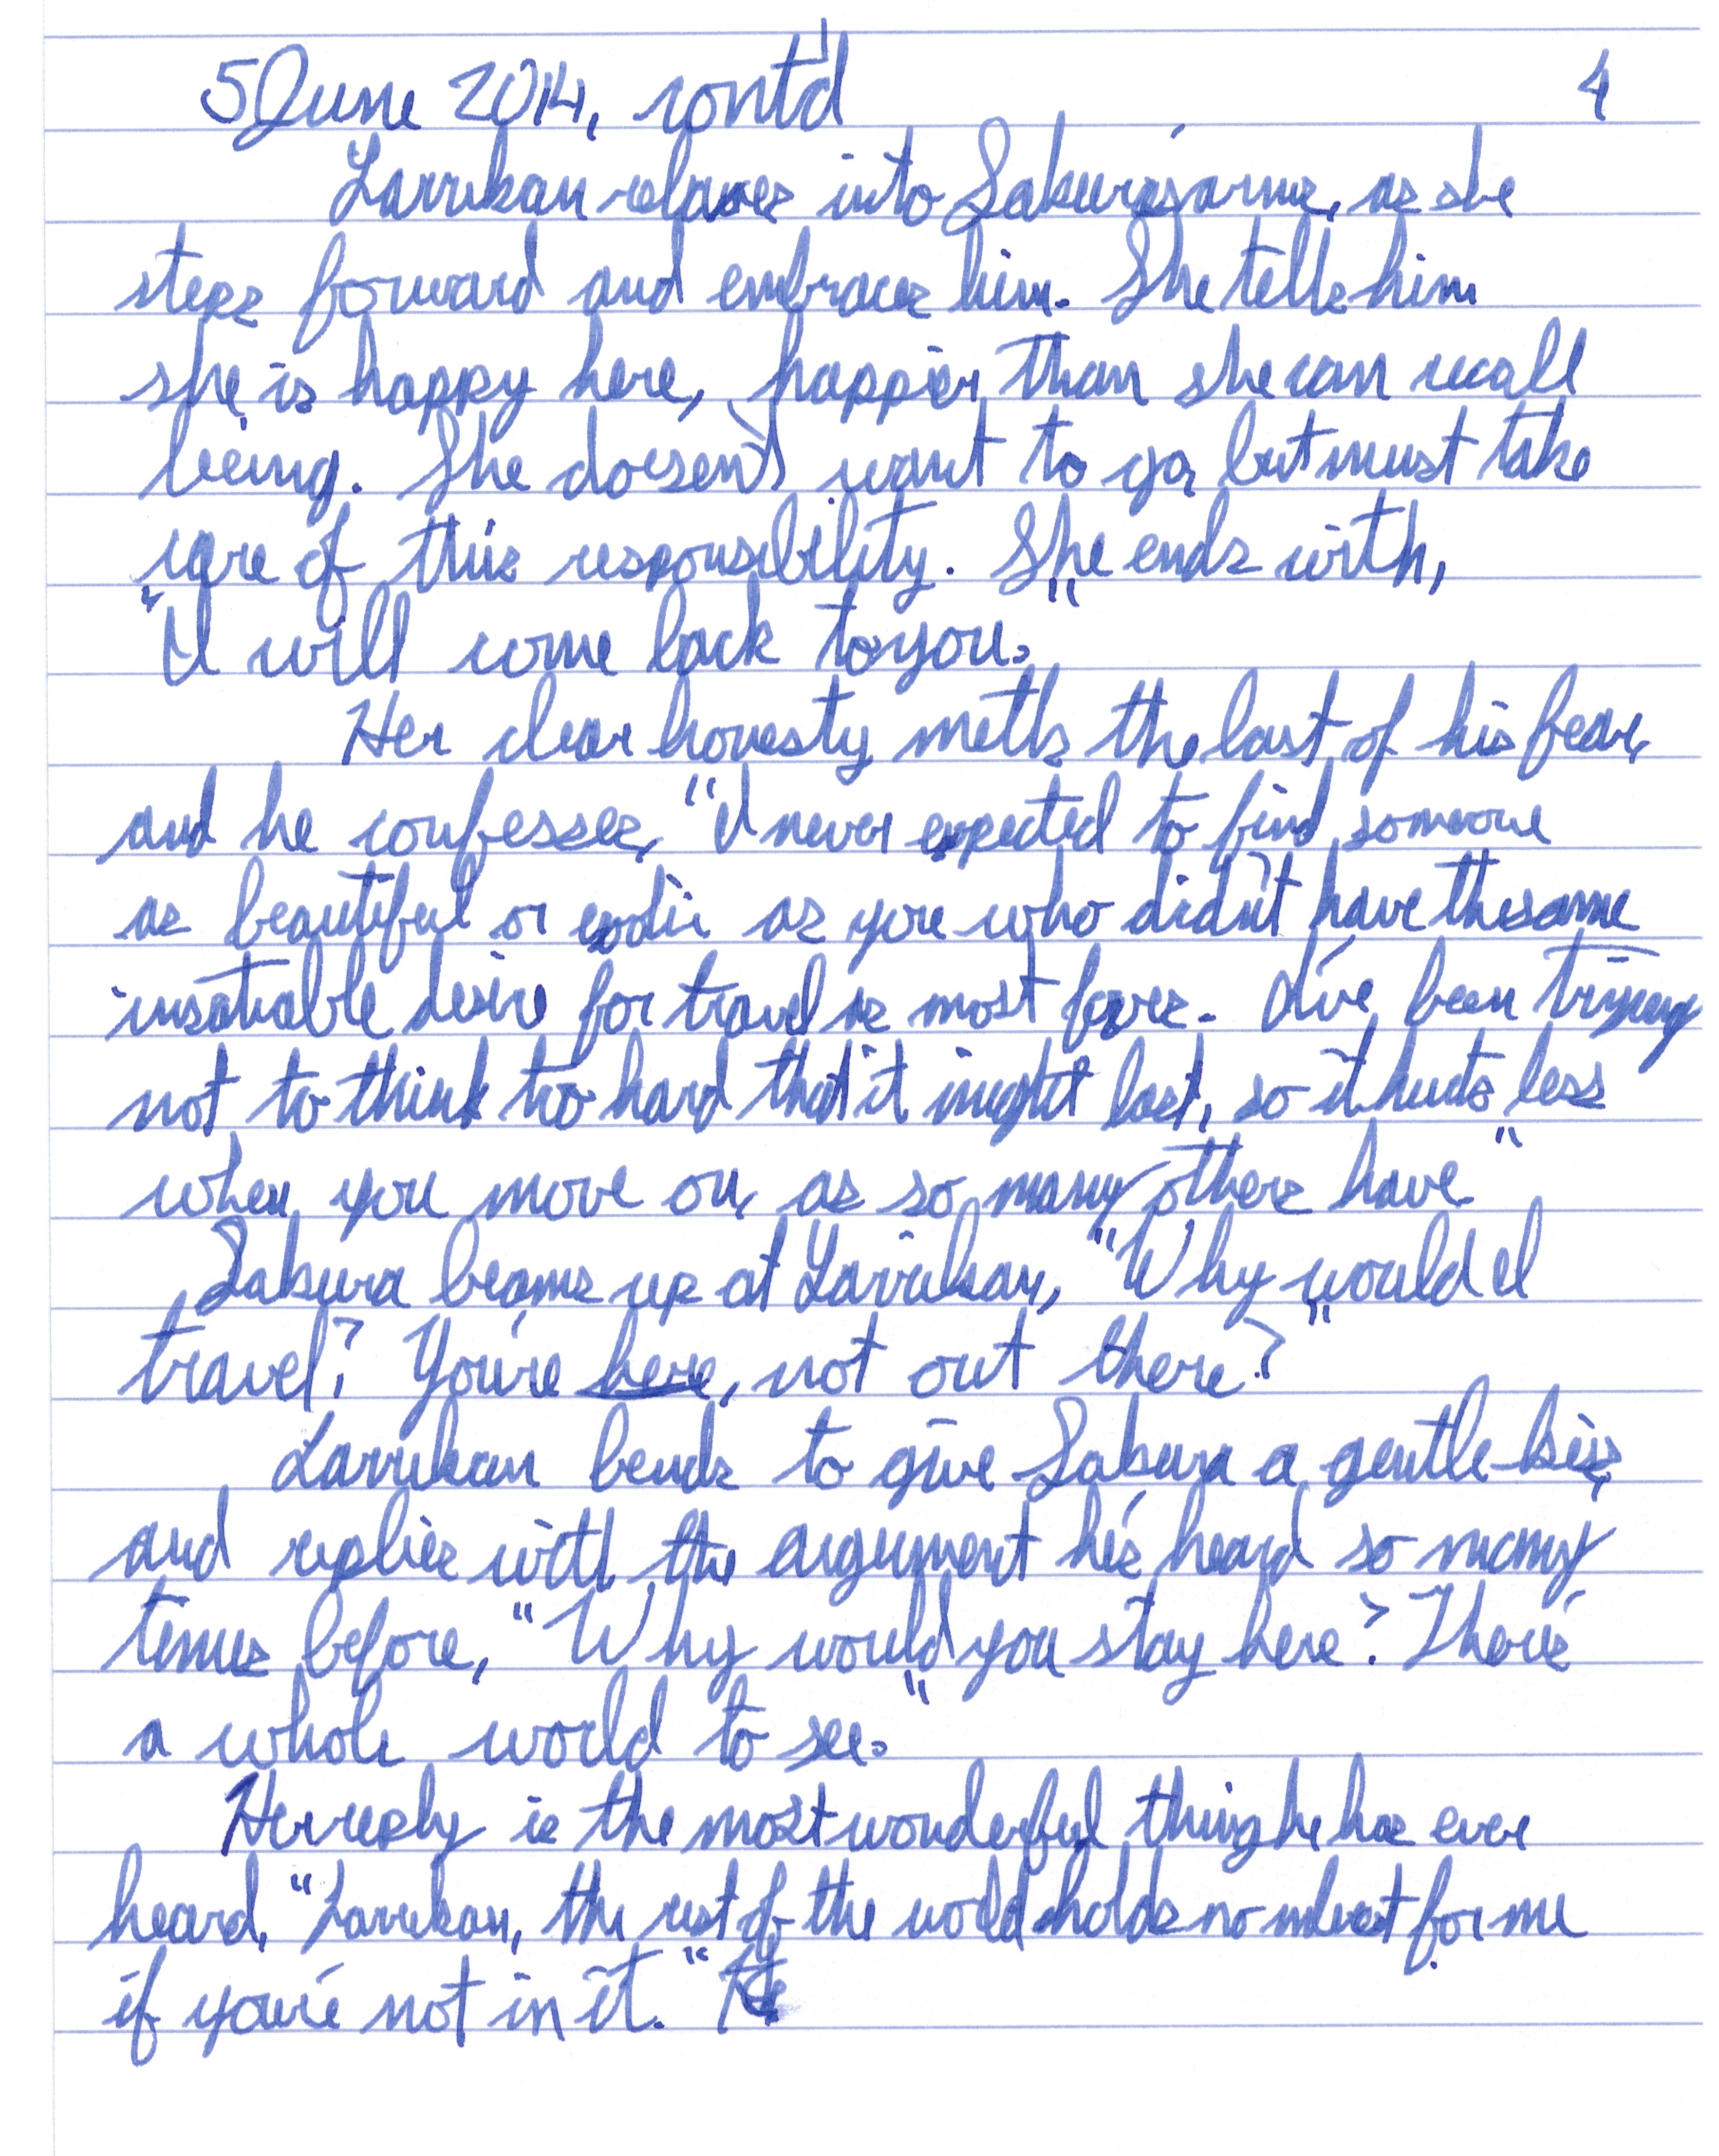 5 June 2014, cont'd 4
Larrikan relaxes into Sakura's arms, as she
steps forward and embraces him. She tells him
she is happy here, happier than she can recall
being. She doesn't want to go, but must take
care of this responsibility. She ends with,
"I will come back to you."
Her clear honesty melts the last of his fear,
and he confesses, "I never expected to find someone
as beautiful or exotic as you who didn't have the same
insatiable desire for travel as most fores. I've been trying
not to think too hard that it might last, so it hurts less
when you move on, as so many others have"
Sakura beams up at Larrikan, "Why would I
travel? You're here, not out there?"
Larrikan bends to give Sakura a gentle kiss,
and replies with the argument he's heard so many
times before, "Why would you stay here? There's
a whole world to see."
Her reply is the most wonderful thing he has ever
heard, "Larrikan, the rest of the world holds no interest for me
if you're not in it."